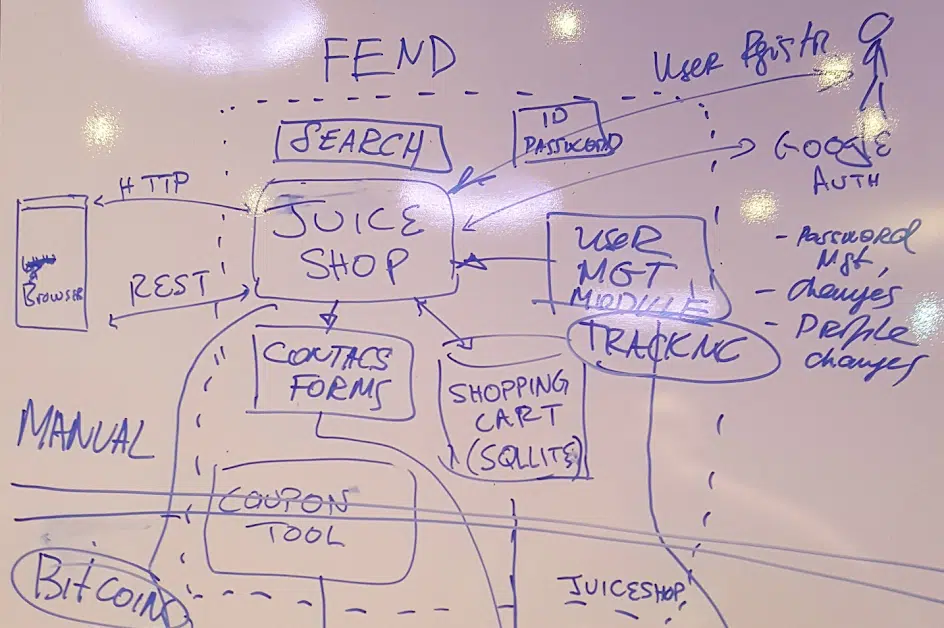 FEND
User Registr
ID
PASSWORD
SEARCH
GOOGLE
AUTH
HTTP
JUICE
SHOP
USER
MGT
MODULE
- PASSWORD
Mgt,
- changes
- Profile
changes
BROWSER
REST
TRACKNG
CONTACS
FORMS
SHOPPING
CART
(SQLLITE)
MANUAL
COUPON
TOOL
BITCOINS
JUICESHOP